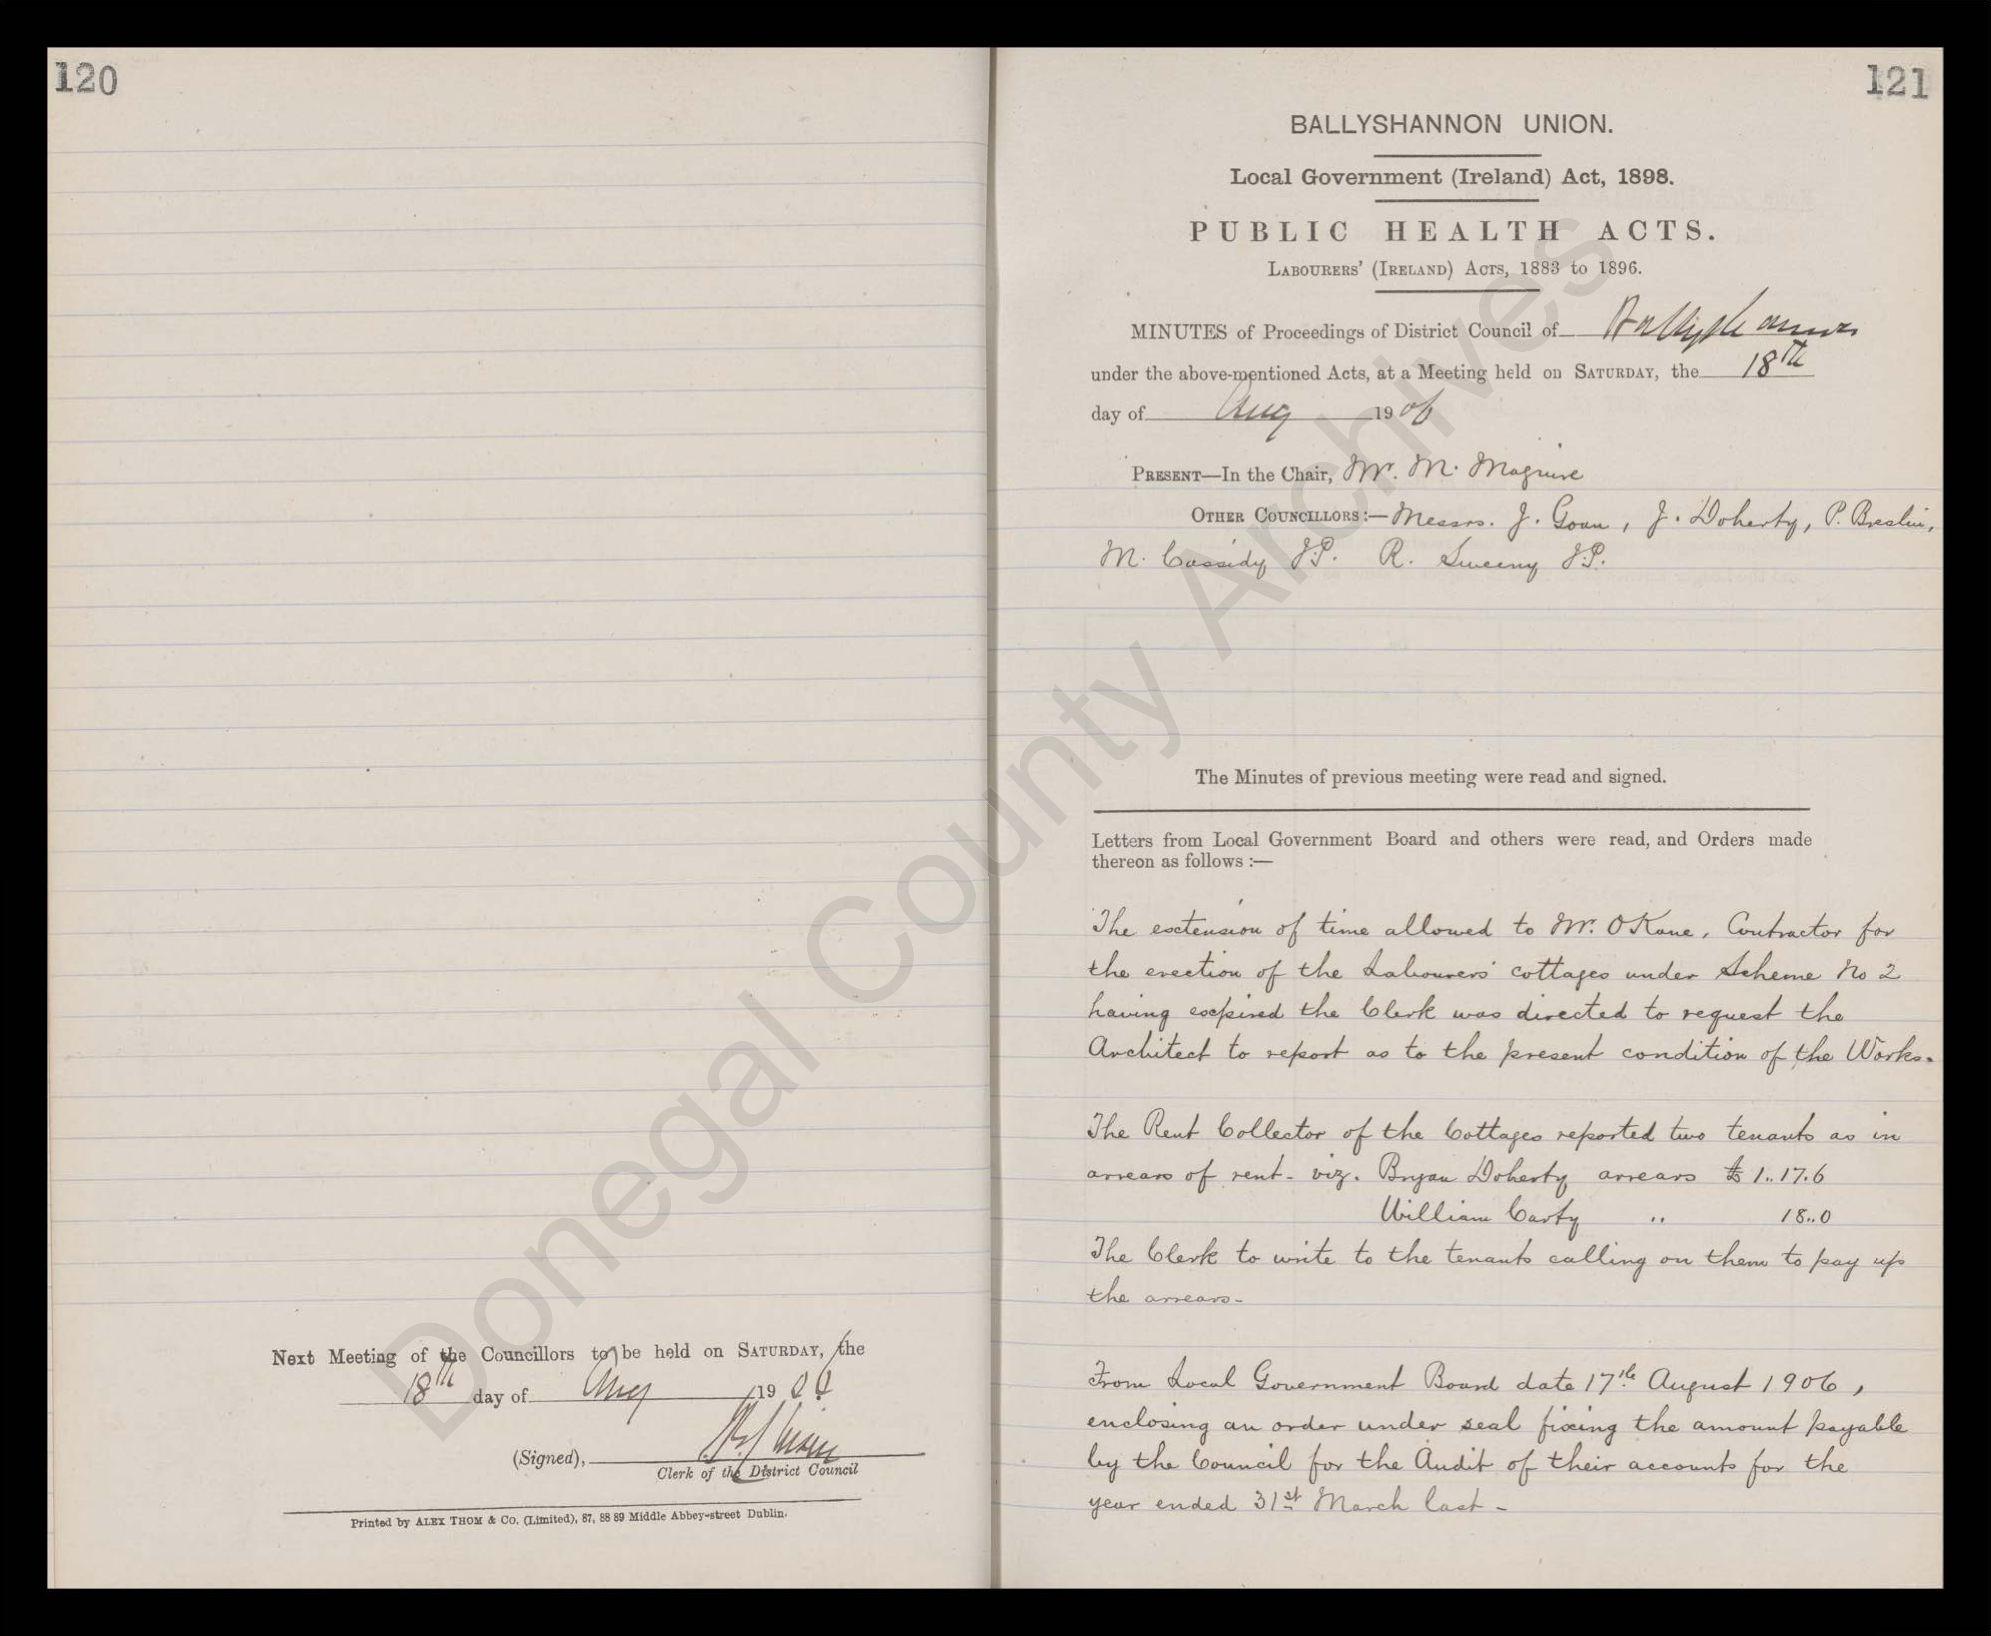 120
Next Meeting of the Councillors to be held on SATURDAY, the
18th day of Aug 1906
(Signed),
Clerk of the District Council
Printed by ALEX THOM & Co. (Limited), 87, 88 89 Middle Abbey-street Dublin.
121
BALLYSHANNON UNION.
Local Government (Ireland) Act, 1898.
PUBLIC HEALTH ACTS.
LABOURERS' (IRELAND) ACTS, 1883 to 1896.
MINUTES of Proceedings of District Council of Ballyshannon
under the above-mentioned Acts, at a Meeting held on SATURDAY, the 18th
day of Aug 1906
PRESENT—In the Chair, Mr. M. Maguire
OTHER COUNCILLORS:—Messrs. J. Goan, J. Doherty, P. Breslin,
M. Cassidy J.P. R. Sweeny J.P.
The Minutes of previous meeting were read and signed.
Letters from Local Government Board and others were read, and Orders made
thereon as follows :—
The extension of time allowed to Mr. O'Kane, Contractor for
the erection of the Labourers' cottages under Scheme No 2
having expired the Clerk was directed to request the
Architect to report as to the present condition of the Works.
The Rent Collector of the Cottages reported two tenants as in
arrears of rent - viz. Bryan Doherty arrears £1..17.6
William Carty " 18..0
The Clerk to write to the tenants calling on them to pay up
the arrears -
From Local Government Board date 17th August 1906,
enclosing an order under seal fixing the amount payable
by the Council for the Audit of their accounts for the
year ended 31st March last -
Donegal County Archives